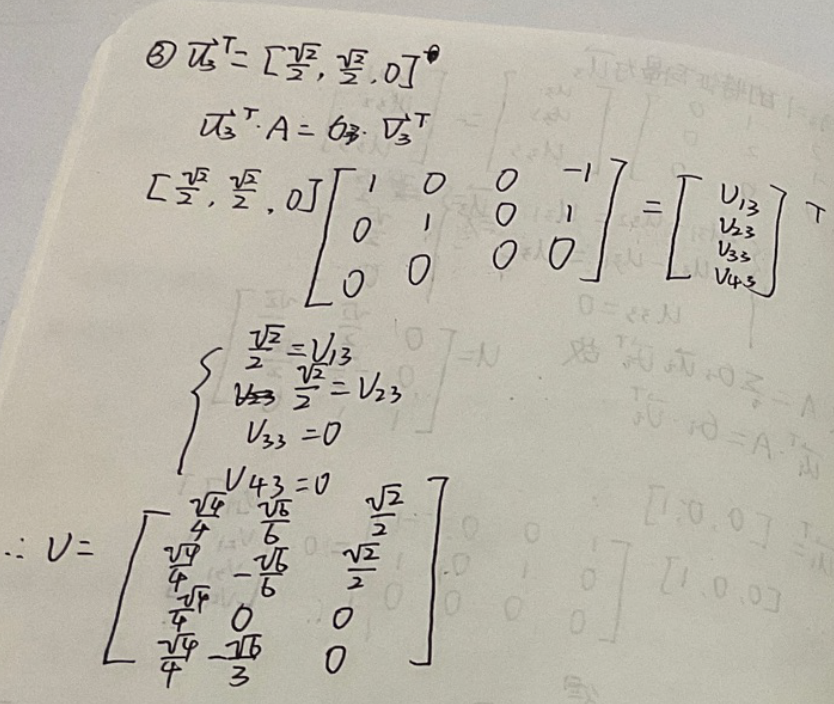 ③ u₃ᵀ = [√2/2, √2/2, 0]
u₃ᵀ · A = 6₃ · V₃ᵀ
[√2/2, √2/2, 0] [1 0 0 -1; 0 1 0 1; 0 0 0 0] = [V₁₃; V₂₃; V₃₃; V₄₃] T
√2/2 = V₁₃
√2/2 = V₂₃
V₃₃ = 0
V₄₃ = 0
∴ V = [√4/4 √6/6 √2/2
√4/4 -√6/6 √2/2
√4/4 0 0
√4/4 -√6/3 0]